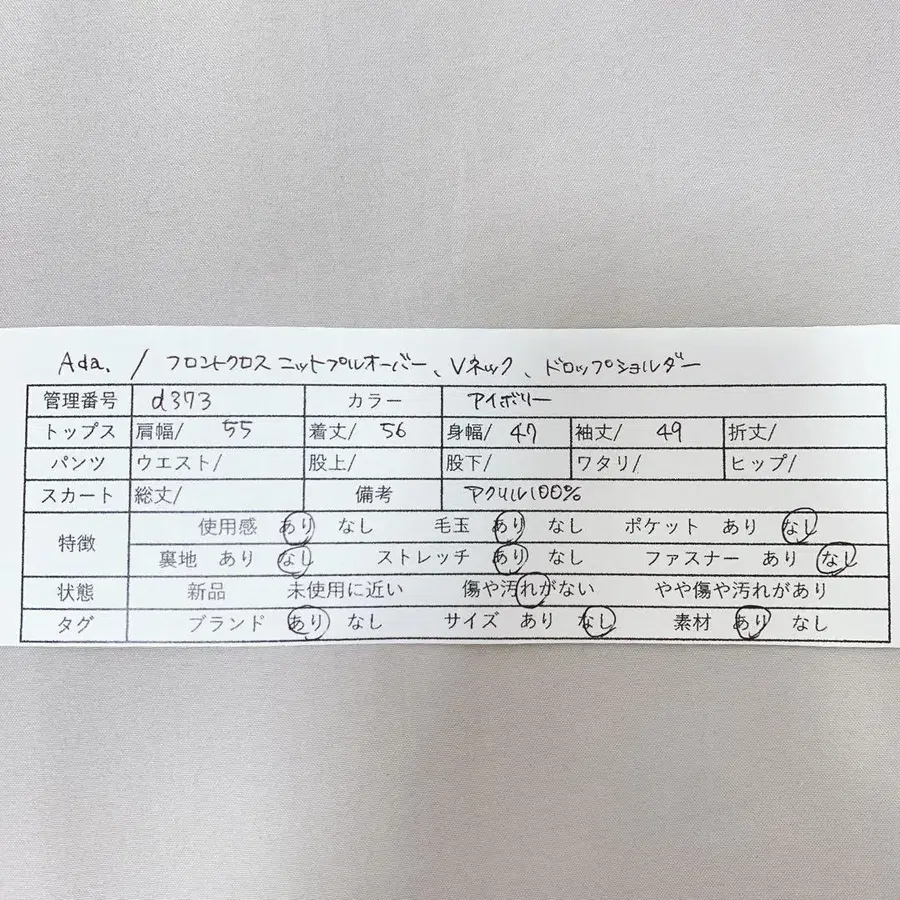 Ada. / フロントクロス ニットプルオーバー、Vネック、ドロップショルダー
管理番号 d373 カラー アイボリー
トップス 肩幅/ 55 着丈/ 56 身幅/ 47 袖丈/ 49 折丈/
パンツ ウエスト/ 股上/ 股下/ ワタリ/ ヒップ/
スカート 総丈/ 備考 アクリル100%
特徴 使用感 あり なし 毛玉 あり なし ポケット あり なし
裏地 あり なし ストレッチ あり なし ファスナー あり なし
状態 新品 未使用に近い 傷や汚れがない やや傷や汚れがあり
タグ ブランド あり なし サイズ あり なし 素材 あり なし